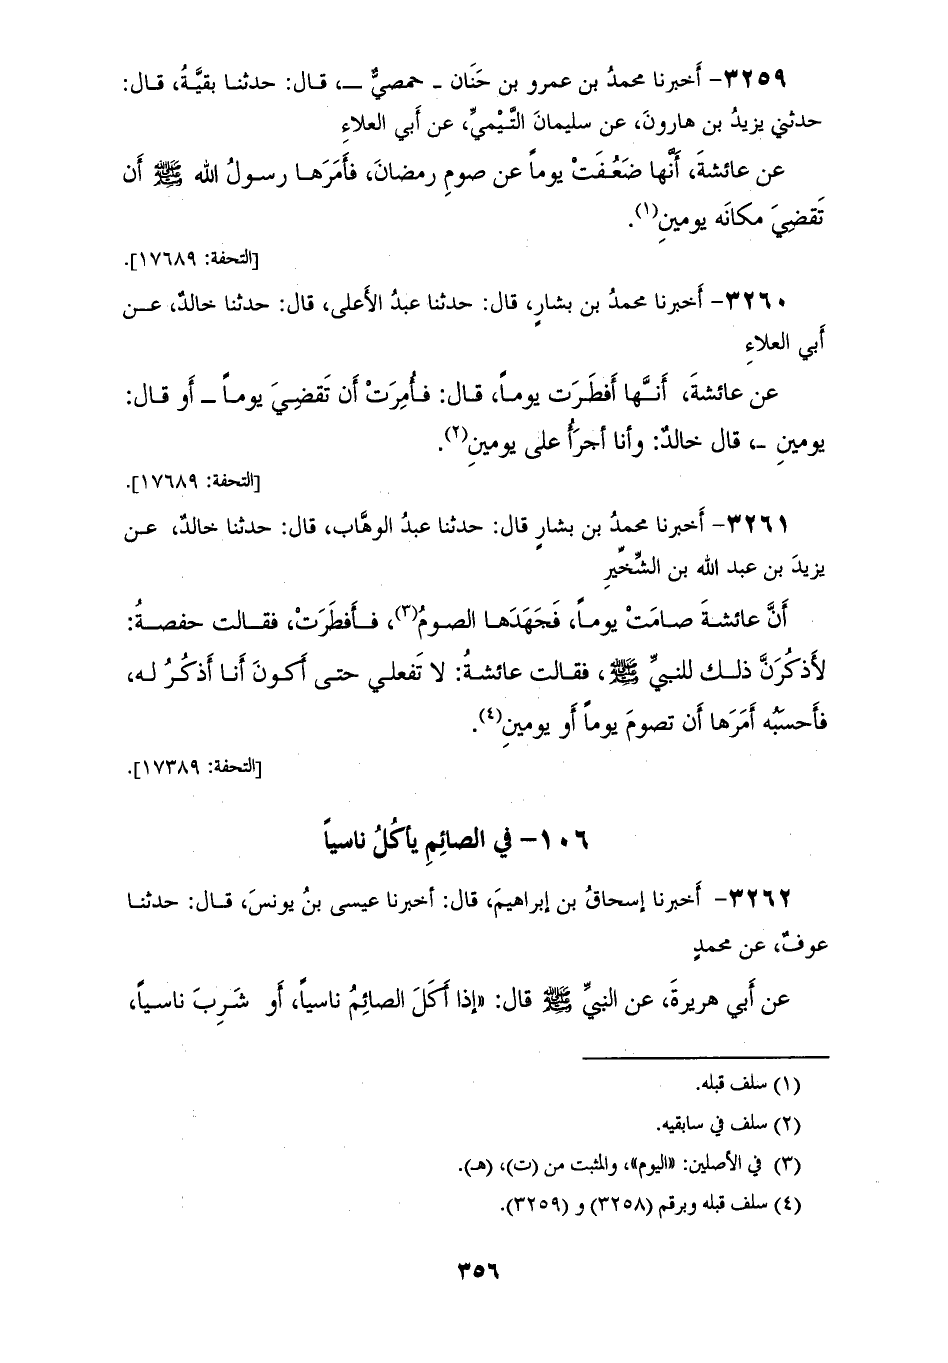 ٣٢٥٩- أَخبرنا محمدُ بن عمرو بن حَنَان ـ حمصيٌّ ـ، قال: حدثنا بقيَّةُ، قال:
حدثني يزيدُ بن هارونَ، عن سليمانَ التَّيْميِّ، عن أَبي العلاءِ
عن عائشةَ، أَنَّها ضَعُفَتْ يوماً عن صومِ رمضانَ، فأَمَرَها رسولُ الله ﷺ أَن
تَقضِيَ مكانَه يومينِ(١).
[التحفة: ١٧٦٨٩].
٣٢٦٠- أَخبرنا محمدُ بن بشارٍ، قال: حدثنا عبدُ الأَعلى، قال: حدثنا خالدٌ، عن
أَبي العلاءِ
عن عائشةَ، أَنَّها أَفطَرَت يوماً، قال: فأُمِرَتْ أَن تَقضِيَ يوماً ـ أَو قال:
يومينِ ـ، قال خالدٌ: وأنا أجرَأُ على يومينِ(٢).
[التحفة: ١٧٦٨٩].
٣٢٦١- أَخبرنا محمدُ بن بشارٍ قال: حدثنا عبدُ الوهَّاب، قال: حدثنا خالدٌ، عن
يزيدَ بن عبد الله بن الشِّخِّيرِ
أَنَّ عائشةَ صامَتْ يوماً، فَجَهَدَها الصومُ(٣)، فأَفطَرَتْ، فقالت حفصةُ:
لأَذكُرَنَّ ذلك للنبيِّ ﷺ، فقالت عائشةُ: لا تَفعلي حتى أَكونَ أَنا أَذكُرُ له،
فأَحسَبُه أَمَرَها أَن تصومَ يوماً أَو يومينِ(٤).
[التحفة: ١٧٣٨٩].
١٠٦- في الصائِمِ يأكُلُ ناسياً
٣٢٦٢- أَخبرنا إسحاقُ بن إبراهيمَ، قال: أخبرنا عيسى بنُ يونسَ، قال: حدثنا
عوفٌ، عن محمدٍ
عن أَبي هريرةَ، عن النبيِّ ﷺ قال: «إذا أَكَلَ الصائِمُ ناسياً، أَو شَرِبَ ناسياً،
(١) سلف قبله.
(٢) سلف في سابقيه.
(٣) في الأصلين: «اليوم»، والمثبت من (ت)، (هـ).
(٤) سلف قبله وبرقم (٣٢٥٨) و (٣٢٥٩).
٣٥٦